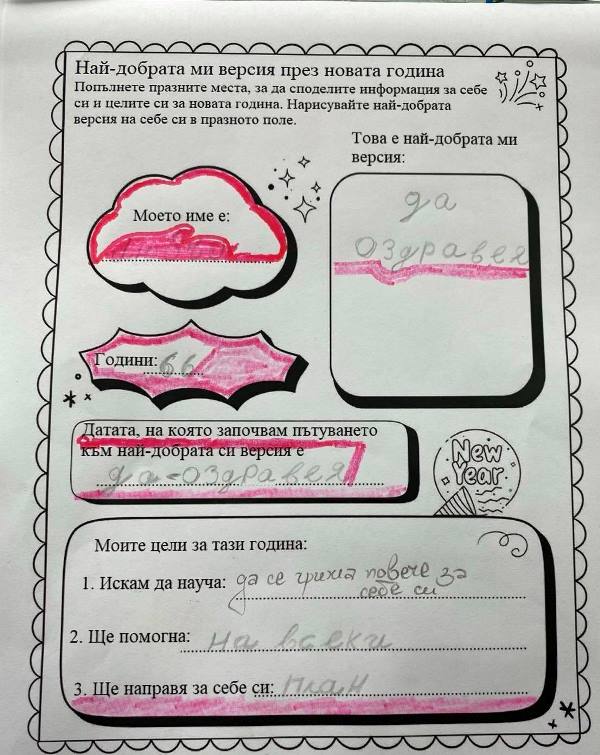 Най-добрата ми версия през новата година
Попълнете празните места, за да споделите информация за себе
си и целите си за новата година. Нарисувайте най-добрата
версия на себе си в празното поле.
Това е най-добрата ми
версия:
да
оздравея
Моето име е:
Години: 66
Датата, на която започвам пътуването
към най-добрата си версия е
да-оздравея
New
Year
Моите цели за тази година:
1. Искам да науча: да се грижа повече за
себе си
2. Ще помогна: на всеки
3. Ще направя за себе си: план